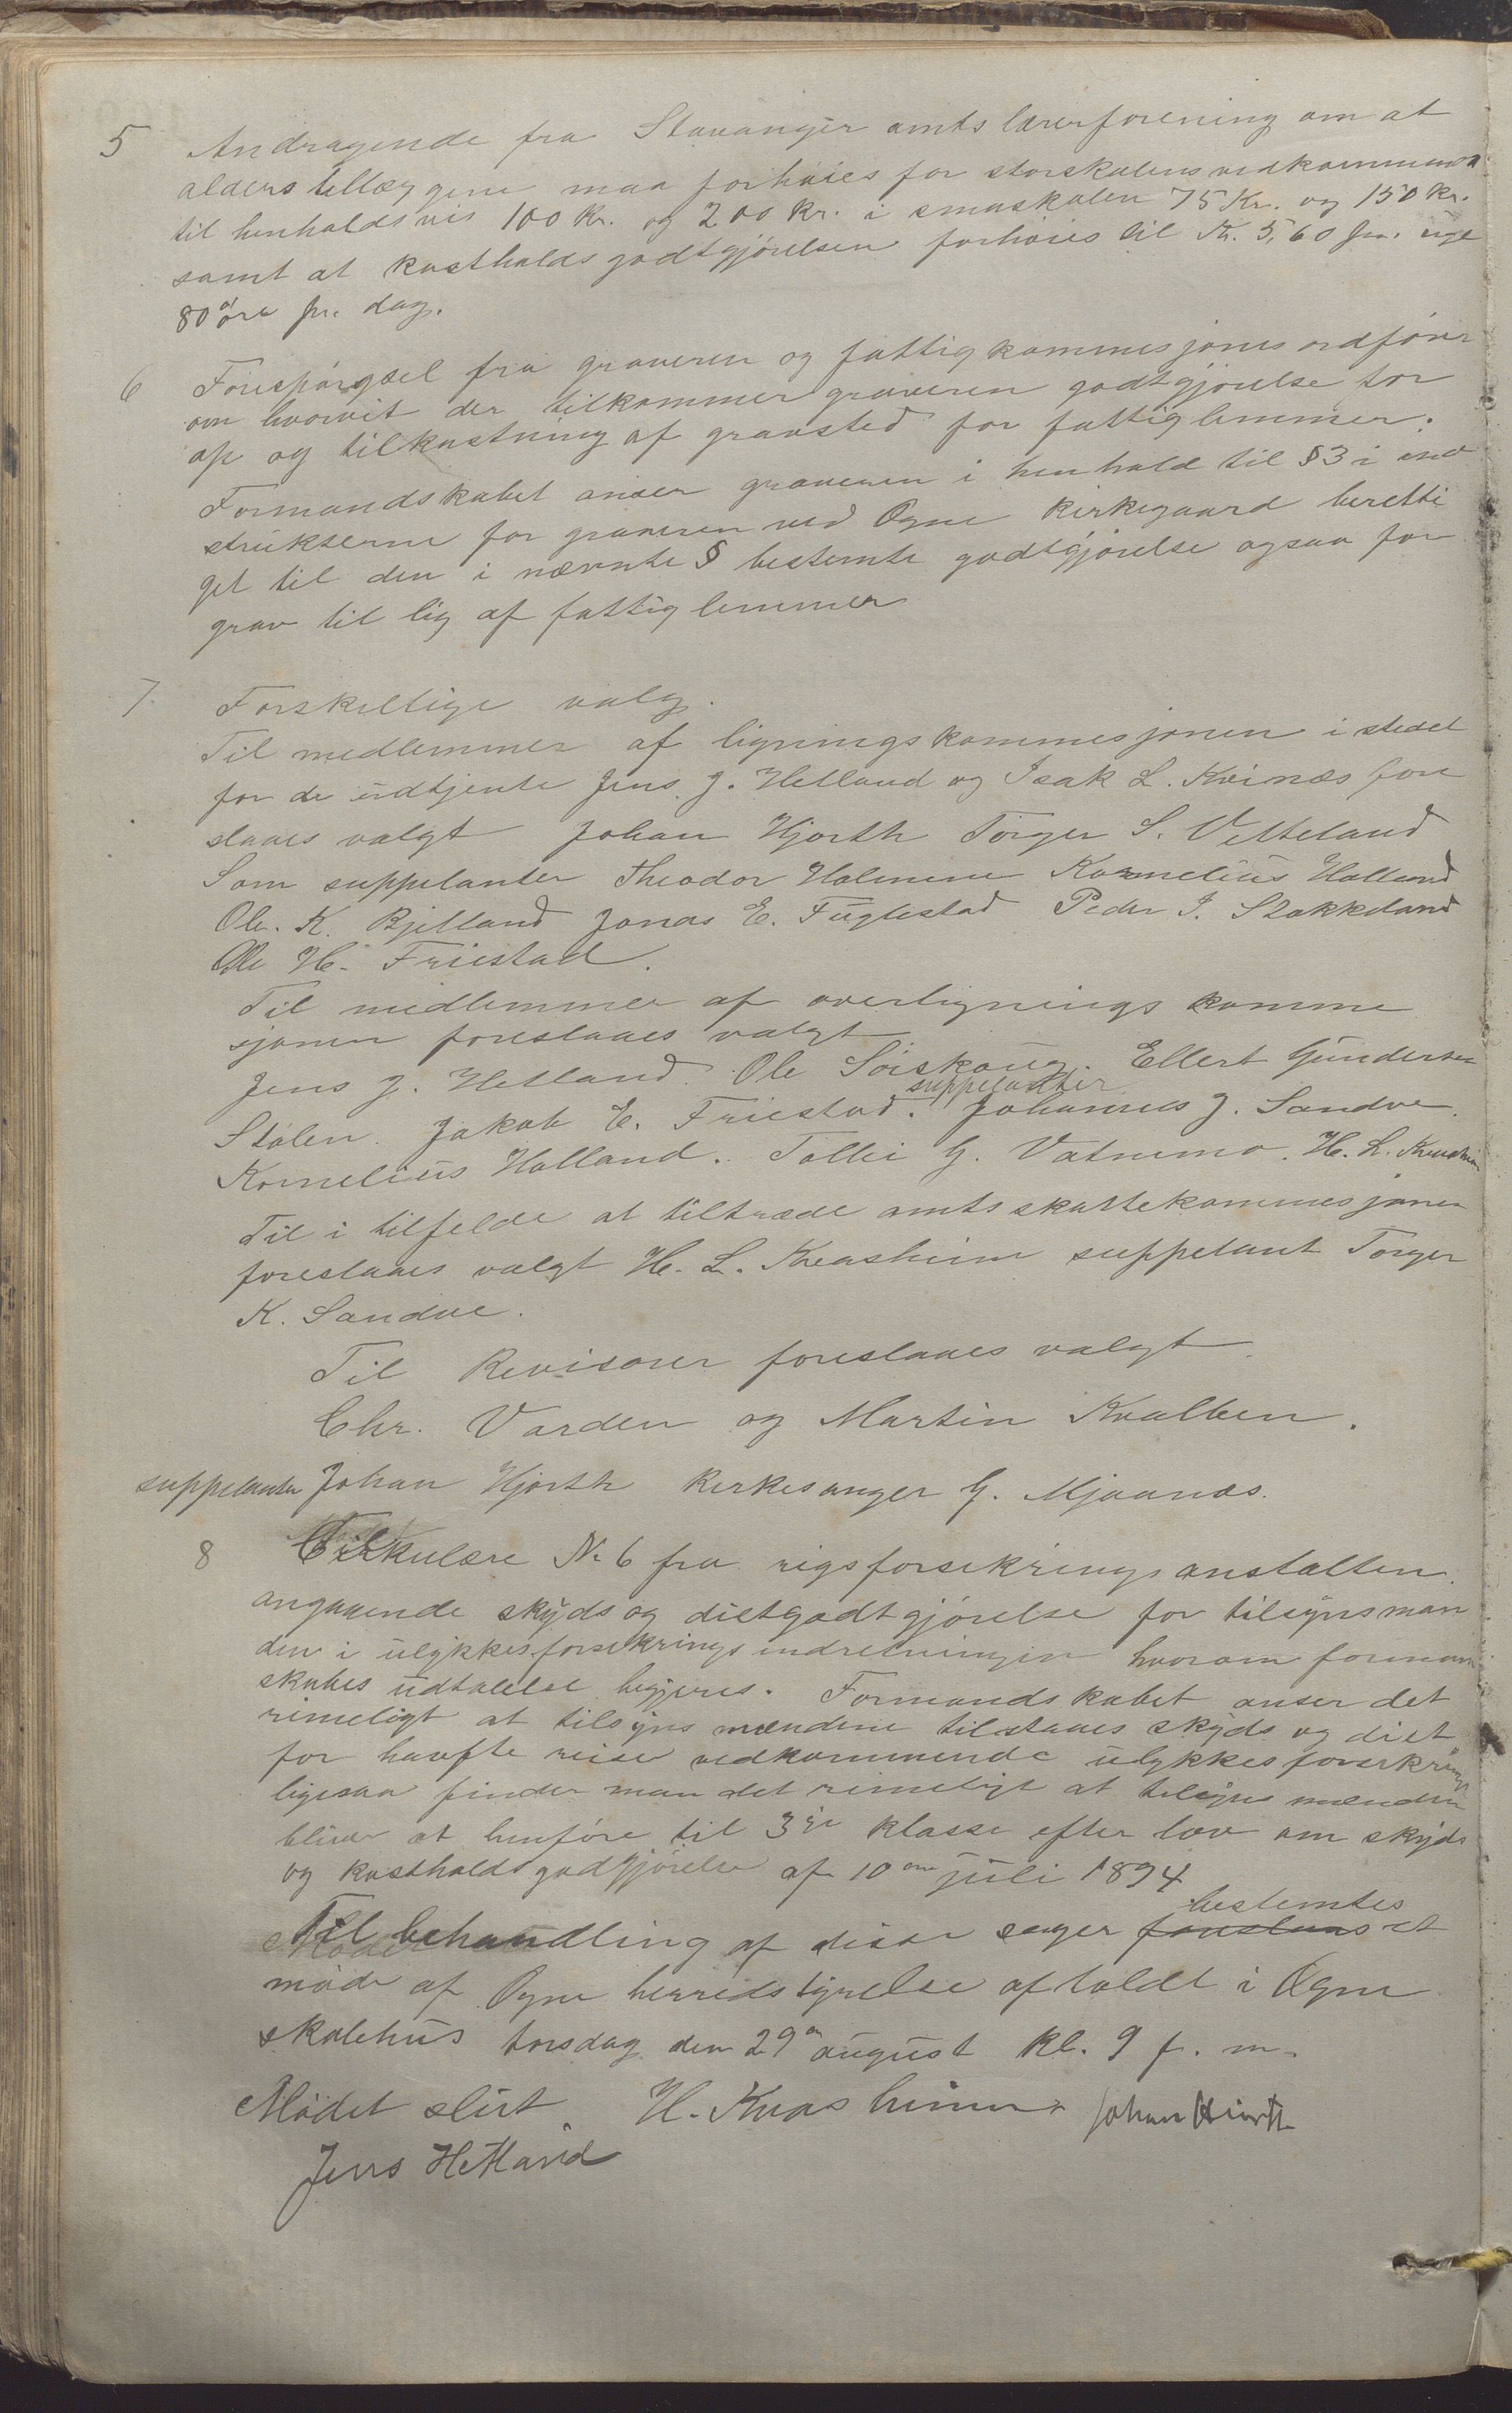 5 Andragende fra Stavanger amts lærerforening om at
alderstillæggene maa forhöies for storskolens vedkommende
til henholdsvis 100 Kr. og 200 Kr. i smaskolen 75 Kr. og 150 Kr.
samt at kostholdsgodtgjörelsen forhöies til Kr. 5,60 pr. uge
80 öre pr. dag.
6 Forespörgsel fra graveren og fattigkommesjones ordförer
om hvorvit der tilkommer graveren godtgjörelse for
op og tilkastning af gravsted for fattiglemmer.
Formandskabet anser graveren i henhold til § 3 i ind
strukserne for graveren ved Ogne Kirkegaard beretti
get til den i nævnte § bestemte godtgjörelse ogsaa for
grav til lig af fattiglemmer
7 Forskellige valg.
Til medlemmer af ligningskommesjonen i stedet
for de udtjente Jens J. Hetland og Isak L. Kvinæs fore
slaaes valgt Johan Hjorth Torger S. Vetteland
Som suppelanter Theodor Holmene Kornelius Holland
Ole. K. Bjelland Jonas E. Fuglestad Peder I. Stokkeland
Ole H. Friestad.
Til medlemmer af overlignings komme
sjonen foreslaaes valgt
Jens J. Hetland. Ole Söiskoug. Ellert Gundersen
suppelanter
Stölen. Jakob E. Friestad. Johannes J. Sandve.
Kornelius Holland. Tollei G. Vatnemo. H. L.
Til i tilfelde at tiltræde amtsskattekommesjonen
foreslaaes valgt H. L. Kvasheim suppelant Torger
K. Sandve.
Til Revisorer foreslaaes valgt
Chr. Varden og Martin Kvalben.
suppelanter Johan Hjorth Kirkesanger G. Mjaanæs.
8 Cirkulære No 6 fra rigsforsekringsanstalten
angaaende skyds og dietgodtgjörelse for tilsynsmæn
dene i ulykkesforsekringsindretningen hvorom formand
skabes udtalelse begjeres. Formandskabet anser det
rimeligt at tilsynsmændene tilstaaes skyds og diet
for havfte reiser vedkommende ulykkesforsekring
ligesaa finder man det rimeligt at tilsynsmændene
bliver at henföre til 3die klasse efter lov om skyds
og kostholdsgodgjörelse af 10de juli 1894
bestemtes
Til behandling af disse sager foreslaaes et
möde af Ogne herredstyrelse afholdt i Ogne
skolehus torsdag den 29de august kl. 9 f. m.
Mödet slut. H. Kvasheim Johan Hjorth
Jens Hetland